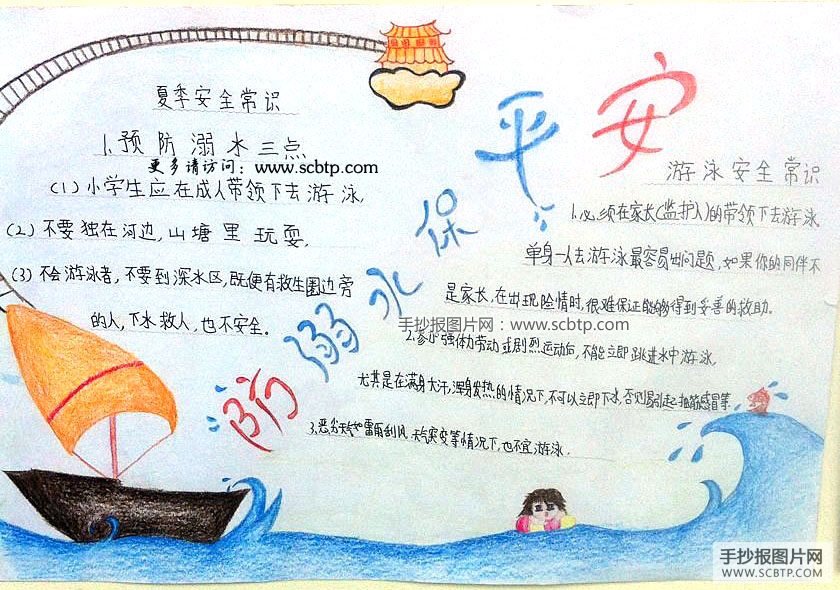 防溺水保平安
夏季安全常识
1.预防溺水三点
更多请访问：www.scbtp.com
(1)小学生应在成人带领下去游泳,
(2)不要独在河边,山塘里玩耍,
(3)不会游泳者,不要到深水区,既便有救生圈边旁
的人,下水救人,也不安全。
游泳安全常识
1.必须在家长(监护人)的带领下去游泳
单身一人去游泳最容易出问题,如果你的同伴不
是家长,在出现险情时,很难保证能够得到妥善的救助。
手抄报图片网：www.scbtp.com
2.参加强体力劳动或剧烈运动后,不能立即跳进水中游泳,
尤其是在满身大汗,浑身发热的情况下,不可以立即下水,否则易引起抽筋感冒等.
3.恶劣天气如雷雨刮风,天气突变等情况下,也不宜游泳.
手抄报图片网
WWW.SCBTP.COM